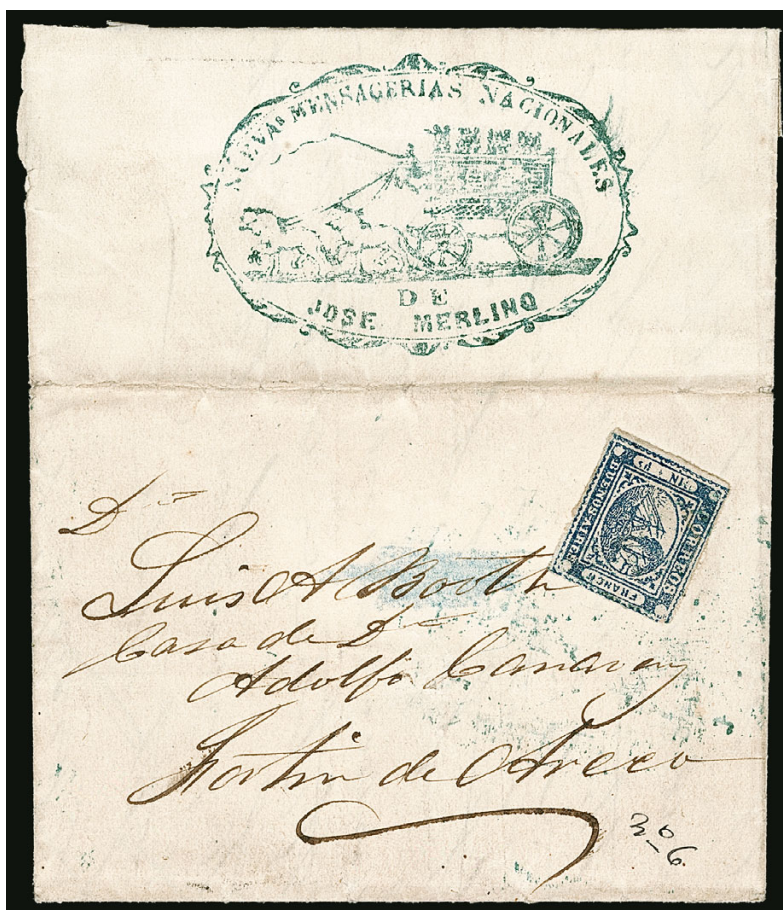 NUEVAS MENSAGERIAS NACIONALES
DE
JOSE MERLINO
CORREO
BUENOS AYRES
FRANCO
IN Ps
Dn
Luis A Booth
Casa de Dn
Adolfo
Fortin de Areco
306